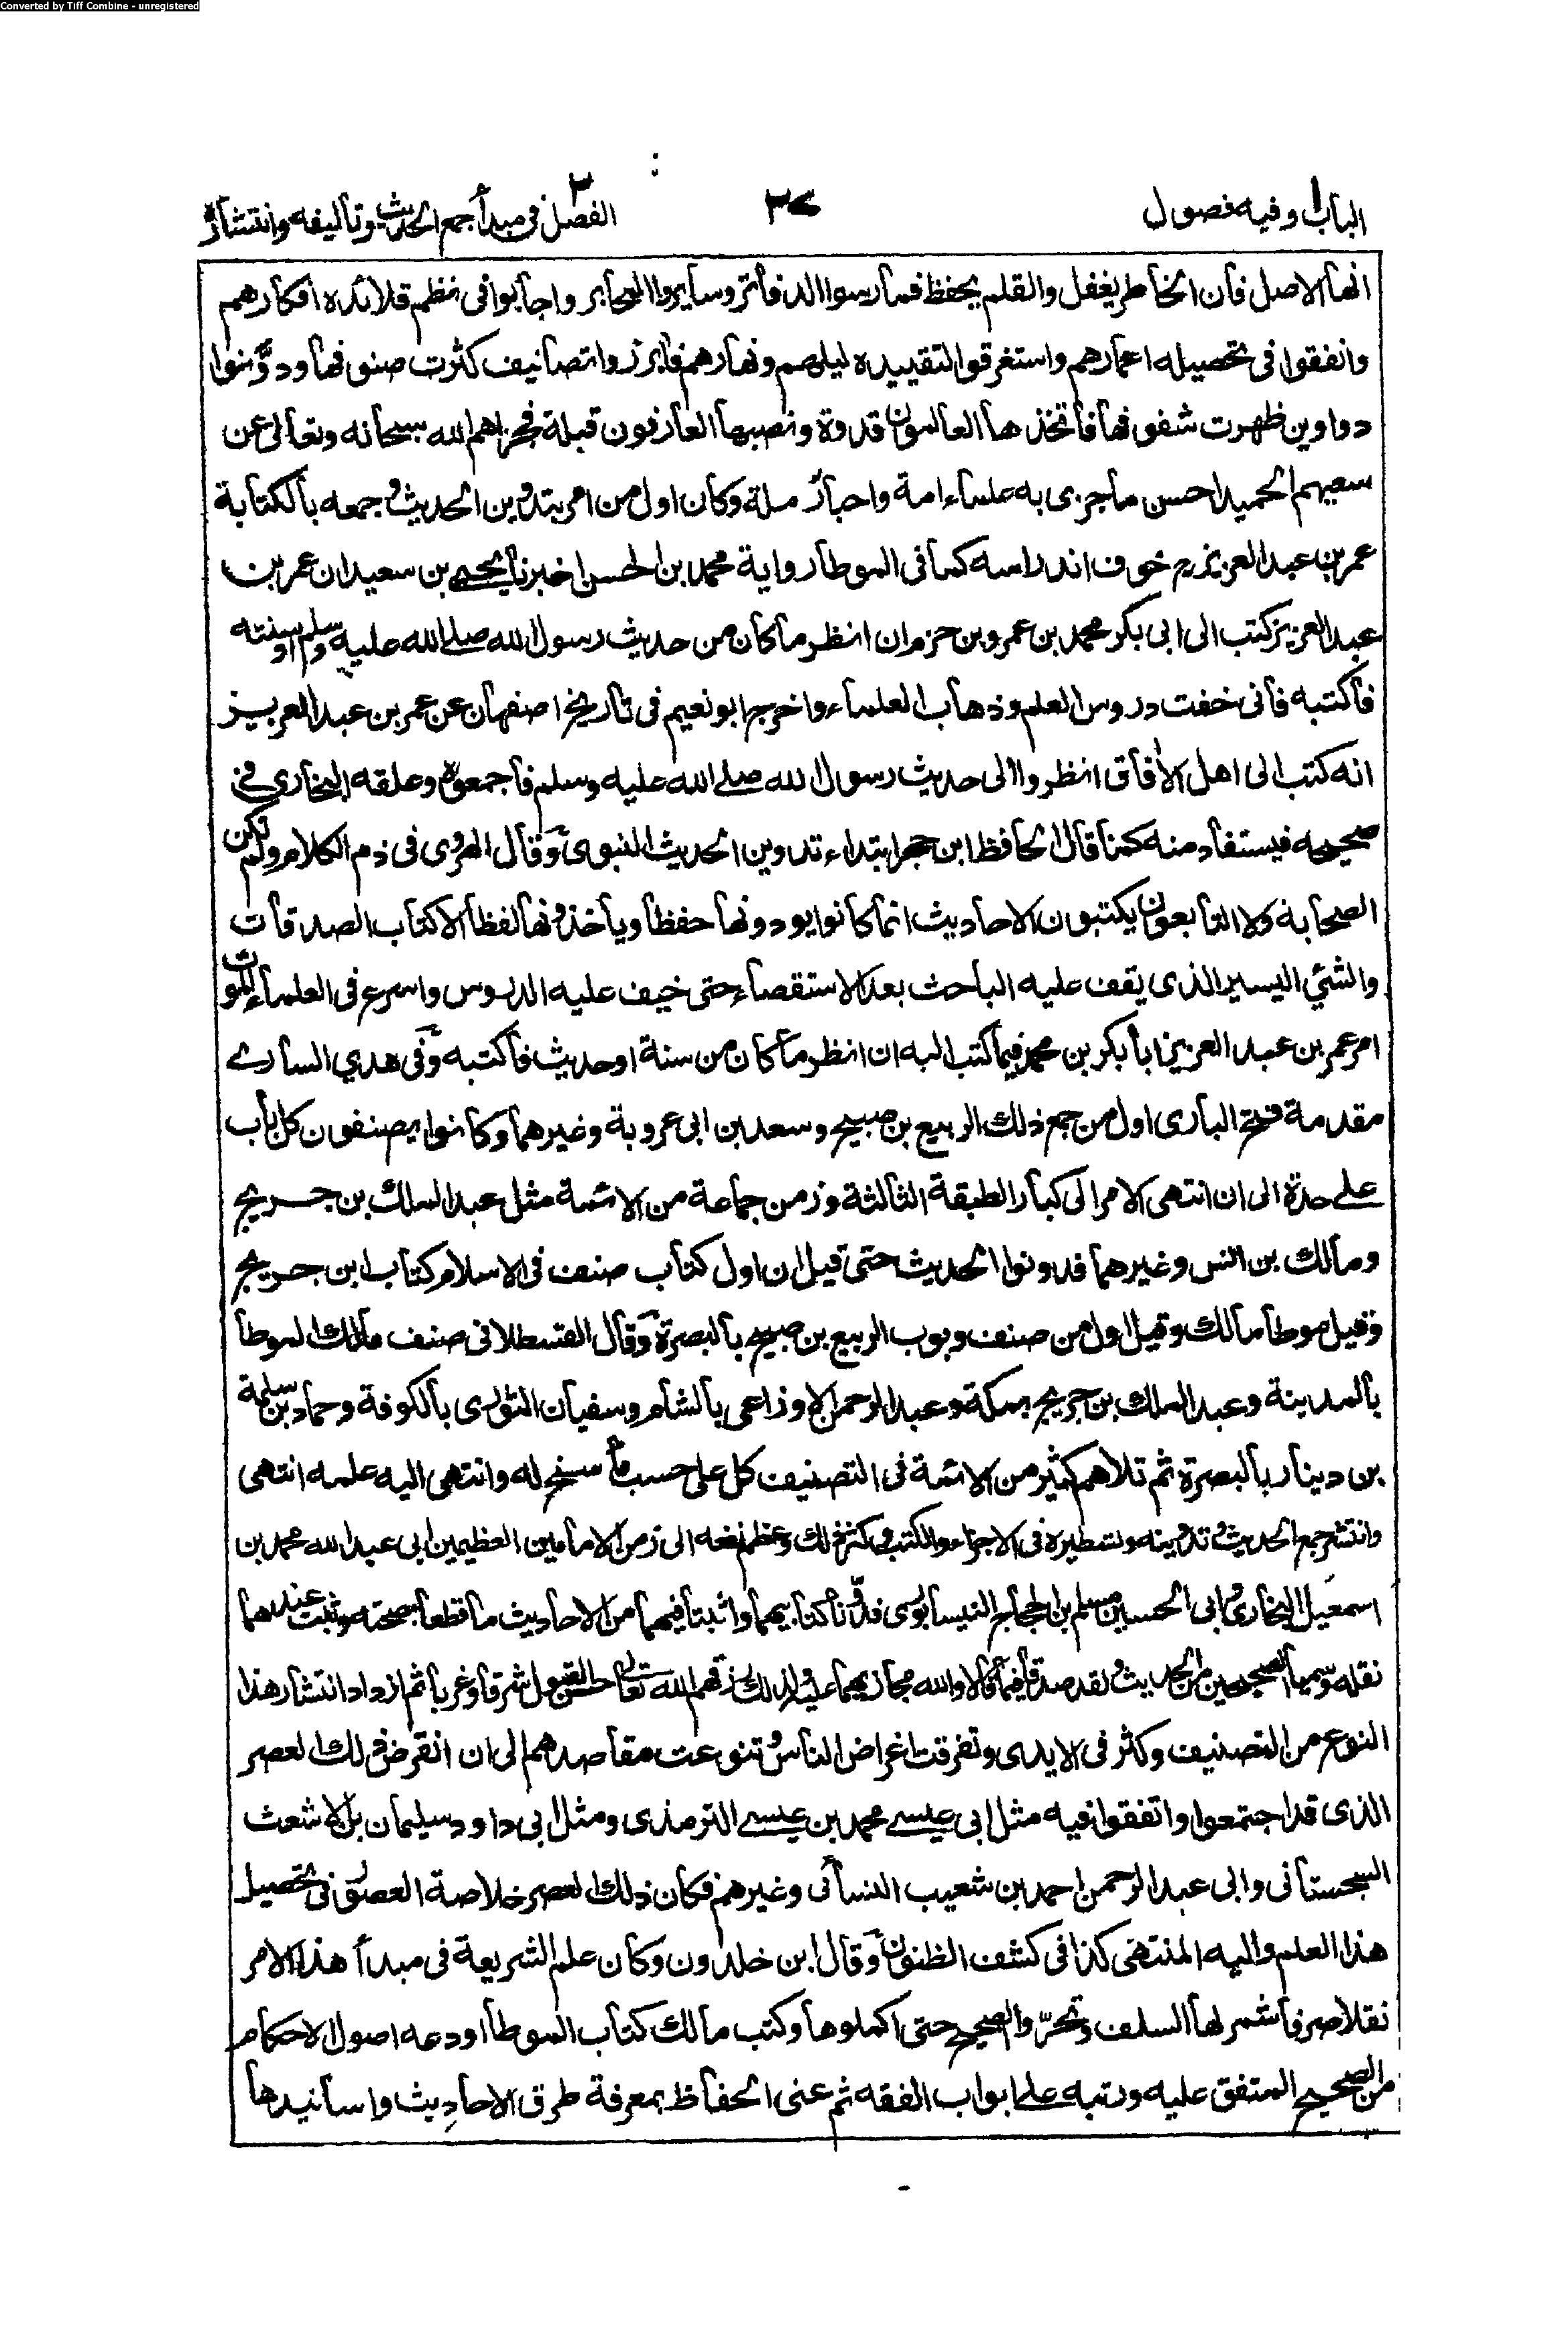 Converted by Tiff Combine - unregistered
الباب١ وفيه فصول
٣٧
الفصل ٣ في مبدأ جمع الحديث وتأليفه وانتشاره
انها الاصل فان الخاطر يغفل والقلم يحفظ فمارسوا الدفاتر وسايروا المحابر واجابوا في نظم قلائده افكارهم
وانفقوا في تحصيله اعمارهم واستغرقوا لتقييده ليلهم ونهارهم فابرزوا تصانيف كثرت صنوفها ودونوا
دواوين ظهرت شفوفها فاتخذها العالمون قدوة ونصبها العارفون قبلة فجزاهم الله سبحانه وتعالى عن
سعيهم الحميد احسن ما جزى به علماء امة واحبار ملة وكان اول من امر بتدوين الحديث وجمعه بالكتابة
عمر بن عبد العزيز رح خوف اندراسه كما في الموطا رواية محمد بن الحسن اخبرنا يحيى بن سعيد ان عمر بن
عبد العزيز كتب الى ابي بكر محمد بن عمرو بن حزم ان انظر ما كان من حديث رسول الله صلى الله عليه وسلم او سنته
فاكتبه فاني خفت دروس العلم وذهاب العلماء واخرج ابو نعيم في تاريخ اصفهان عن عمر بن عبد العزيز
انه كتب الى اهل الآفاق انظروا الى حديث رسول الله صلى الله عليه وسلم فاجمعوه وعلقه البخاري في
صحيحه فيستفاد منه كما قال الحافظ ابن حجر ابتداء تدوين الحديث النبوي وقال الهروي في ذم الكلام ولم تكن
الصحابة ولا التابعون يكتبون الاحاديث انما كانوا يودونها حفظا وياخذونها لفظا الا كتاب الصدقات
والشئي اليسير الذي يقف عليه الباحث بعد الاستقصاء حتى خيف عليه الدروس واسرع في العلماء الموت
امر عمر بن عبد العزيز ابا بكر بن محمد فيما كتب اليه ان انظر ما كان من سنة او حديث فاكتبه وفي هدي الساري
مقدمة فتح الباري اول من جمع ذلك الربيع بن صبيح وسعد بن ابي عروبة وغيرهما وكانوا يصنفون كل باب
على حدة الى ان انتهى الامر الى كبار الطبقة الثالثة وزمن جماعة من الائمة مثل عبد الملك بن جريج
ومالك بن انس وغيرهما فدونوا الحديث حتى قيل ان اول كتاب صنف في الاسلام كتاب ابن جريج
وقيل موطا مالك وقيل اول من صنف وبوب الربيع بن صبيح بالبصرة وقال القسطلاني صنف مالك الموطا
بالمدينة وعبد الملك بن جريج بمكة وعبد الرحمن الاوزاعي بالشام وسفيان الثوري بالكوفة وحماد بن سلمة
بن دينار بالبصرة ثم تلاهم كثير من الائمة في التصنيف كل على حسب ما سنح له وانتهى اليه علمه انتهى
وانتشر جمع الحديث وتدوينه وتسطيره في الاجزاء والكتب وكثر ذلك وعظم نفعه الى زمن الامامين العظيمين ابي عبد الله محمد بن
اسمعيل البخاري وابي الحسين مسلم بن الحجاج النيسابوري فدونا كتابيهما واثبتا فيهما من الاحاديث ما قطعا بصحته وثبت عندهما
نقله وسميا الصحيحين من الحديث ولقد صدقا فيما قالا والله مجازيهما عليه ولذلك رزقهم الله تعالى حسن القبول شرقا وغربا ثم ازداد انتشار هذا
النوع من التصنيف وكثر في الايدي وتفرقت اغراض الناس وتنوعت مقاصدهم الى ان انقرض ذلك العصر
الذي قد اجتمعوا واتفقوا فيه مثل ابي عيسى محمد بن عيسى الترمذي ومثل ابي داود سليمان بن الاشعث
السجستاني وابي عبد الرحمن احمد بن شعيب النسائي وغيرهم فكان ذلك العصر خلاصة العصور في تحصيل
هذا العلم واليه المنتهى كذا في كشف الظنون وقال ابن خلدون وكان علم الشريعة في مبدأ هذا الامر
نقلا صرفا شمر لها السلف وتحروا الصحيح حتى اكملوها وكتب مالك كتاب الموطا اودعه اصول الاحكام
من الصحيح المتفق عليه ورتبه على ابواب الفقه ثم عنى الحفاظ بمعرفة طرق الاحاديث واسانيدها